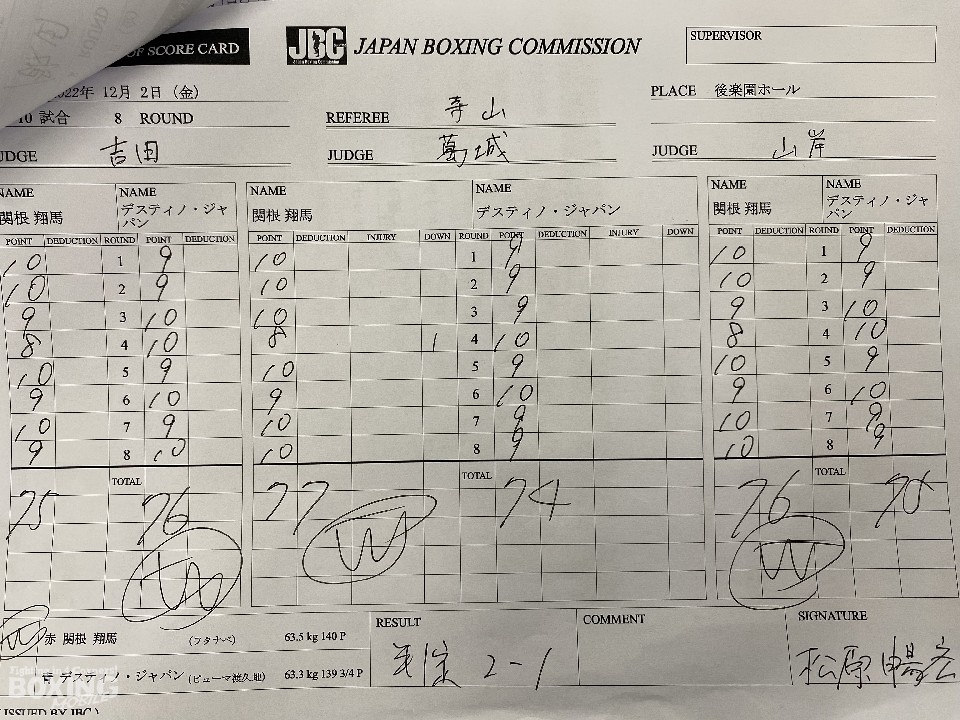 OF SCORE CARD
JBC
JAPAN BOXING COMMISSION
SUPERVISOR
022年 12月 2日（金）
PLACE 後楽園ホール
10 試合 8 ROUND
REFEREE 寺山
UDGE 吉田
JUDGE 葛城
JUDGE 山岸
NAME NAME NAME NAME NAME NAME
関根 翔馬 デスティノ・ジャパン 関根 翔馬 デスティノ・ジャパン 関根 翔馬 デスティノ・ジャパン
POINT DEDUCTION ROUND POINT DEDUCTION POINT DEDUCTION INJURY DOWN ROUND POINT DEDUCTION INJURY DOWN POINT DEDUCTION ROUND POINT DEDUCTION
10 1 9 10 1 9 10 1 9
10 2 9 10 2 9 10 2 9
9 3 10 10 3 9 9 3 10
8 4 10 8 1 4 10 8 4 10
10 5 9 10 5 9 10 5 9
9 6 10 9 6 10 9 6 10
10 7 9 10 7 9 10 7 9
9 8 10 10 8 9 10 8 9
TOTAL TOTAL TOTAL
75 76 77 74 76 75
W W W
W 赤 関根 翔馬 (フタナベ) 63.5 kg 140 P
RESULT
判定 2-1
COMMENT
SIGNATURE
松原 暢宏
青 デスティノ・ジャパン (ピューマ渡久地) 63.3 kg 139 3/4 P
Fighting in 4 Corners!
BOXING
ISSUED BY JBC)